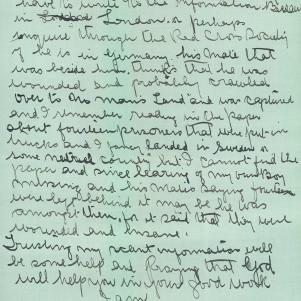 have to write to the Information Bureau
in London. or perhaps
enquire through the Red Cross Society
if he is in Germany. his mate that
was beside him. thinks that he was
wounded and probably crawled
over to No mans Land and was captured
and I remember reading in the paper
about fourteen prisoners that were put in
trucks and I fancy landed in Sweden or
some neutral country but I cannot find the
paper and since hearing of my boy
missing and his mates saying fourteen
were left behind it may be he was
amongst them, for it said that they were
wounded and insane.
Trusting my scant information will
be some help and Praying that God
will help you in your good work
I am